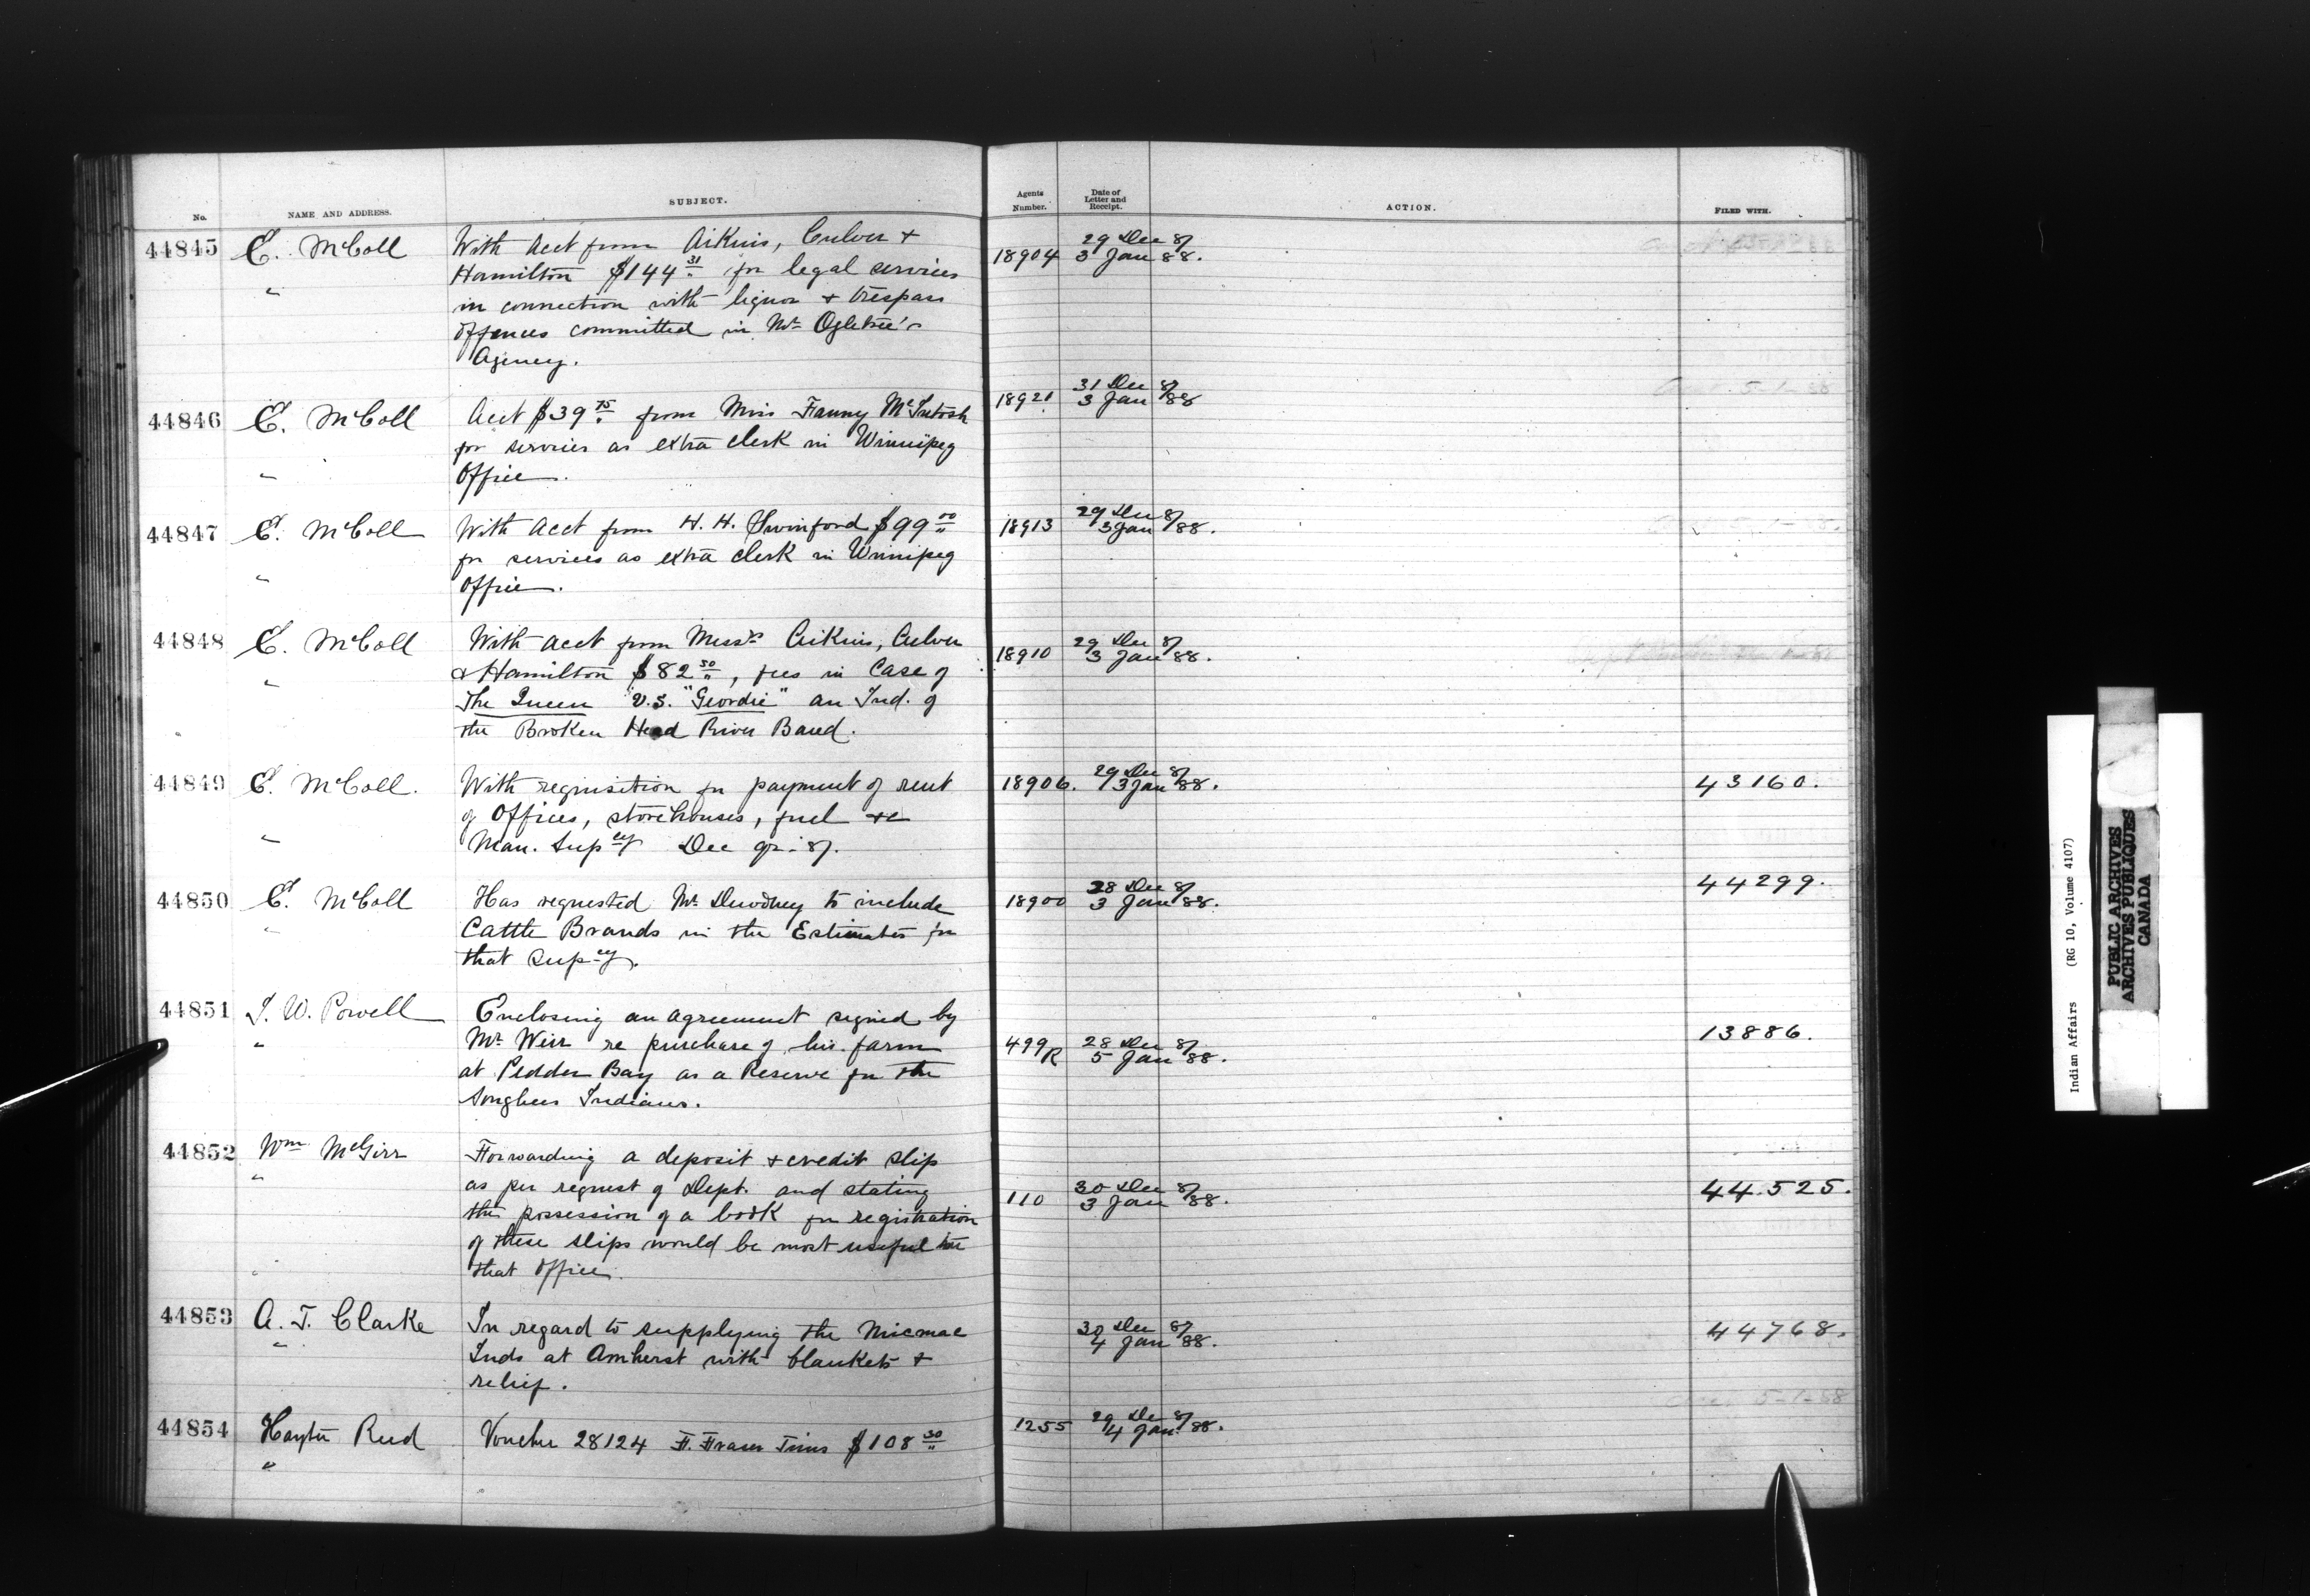 No. NAME AND ADDRESS. SUBJECT. Agents Number. Date of Letter and Receipt. ACTION. FILED WITH.
44845 E. McColl With Acct from Aikins, Culver + 18904 29 Dec 87
" Hamilton $144 31 for legal services 3 Jan 88.
in connection with liquor + trespass
offences committed in Mr Ogletree's
Agency.
44846 E. McColl Acct $39 75 from Miss Fanny McIntosh 18921 31 Dec 87
for services as extra clerk in Winnipeg 3 Jan 88
" Office. 5-1-88
44847 E. McColl With Acct from H. H. Swinford $99 00 18913 29 Dec 87
for services as extra clerk in Winnipeg 3 Jan 88.
" Office.
44848 E. McColl With acct from Messrs Aikins, Culver 18910 29 Dec 87
" & Hamilton $82 50, fees in Case of 3 Jan 88.
The Queen v.s. "Geordie" an Ind. of
the Broken Head River Band.
44849 E. McColl. With requisition for payment of rent 18906. 29 Dec 87 43160.
of Offices, storehouses, fuel &c 3 Jan 88.
" Man. Supcy Dec qr. 87.
44850 E. McColl Has requested Mr Dewdney to include 18900 28 Dec 87 44299.
" Cattle Brands in the Estimates for 3 Jan 88.
that Supcy.
44851 I. W. Powell Enclosing an agreement signed by
" Mr Weir re purchase of his farm 499R 28 Dec 87 13886.
at Pedder Bay as a Reserve for the 5 Jan 88.
Songhees Indians.
44852 Wm McGirr Forwarding a deposit + credit slip
" as per request of Dept. and stating 110 30 Dec 87 44.525.
the possession of a book for registration 3 Jan 88.
of these slips would be most useful to
" that Office.
44853 A. T. Clarke In regard to supplying the Micmac 30 Dec 87 44768.
" Inds at Amherst with blankets + 4 Jan 88.
relief.
44854 Hayter Reed Voucher 28124 F. Fraser Tims $108 30 1255 29 Dec 87 5-1-88
" 4 Jan 88.
Indian Affairs (RG 10, Volume 4107)
PUBLIC ARCHIVES
ARCHIVES PUBLIQUES
CANADA